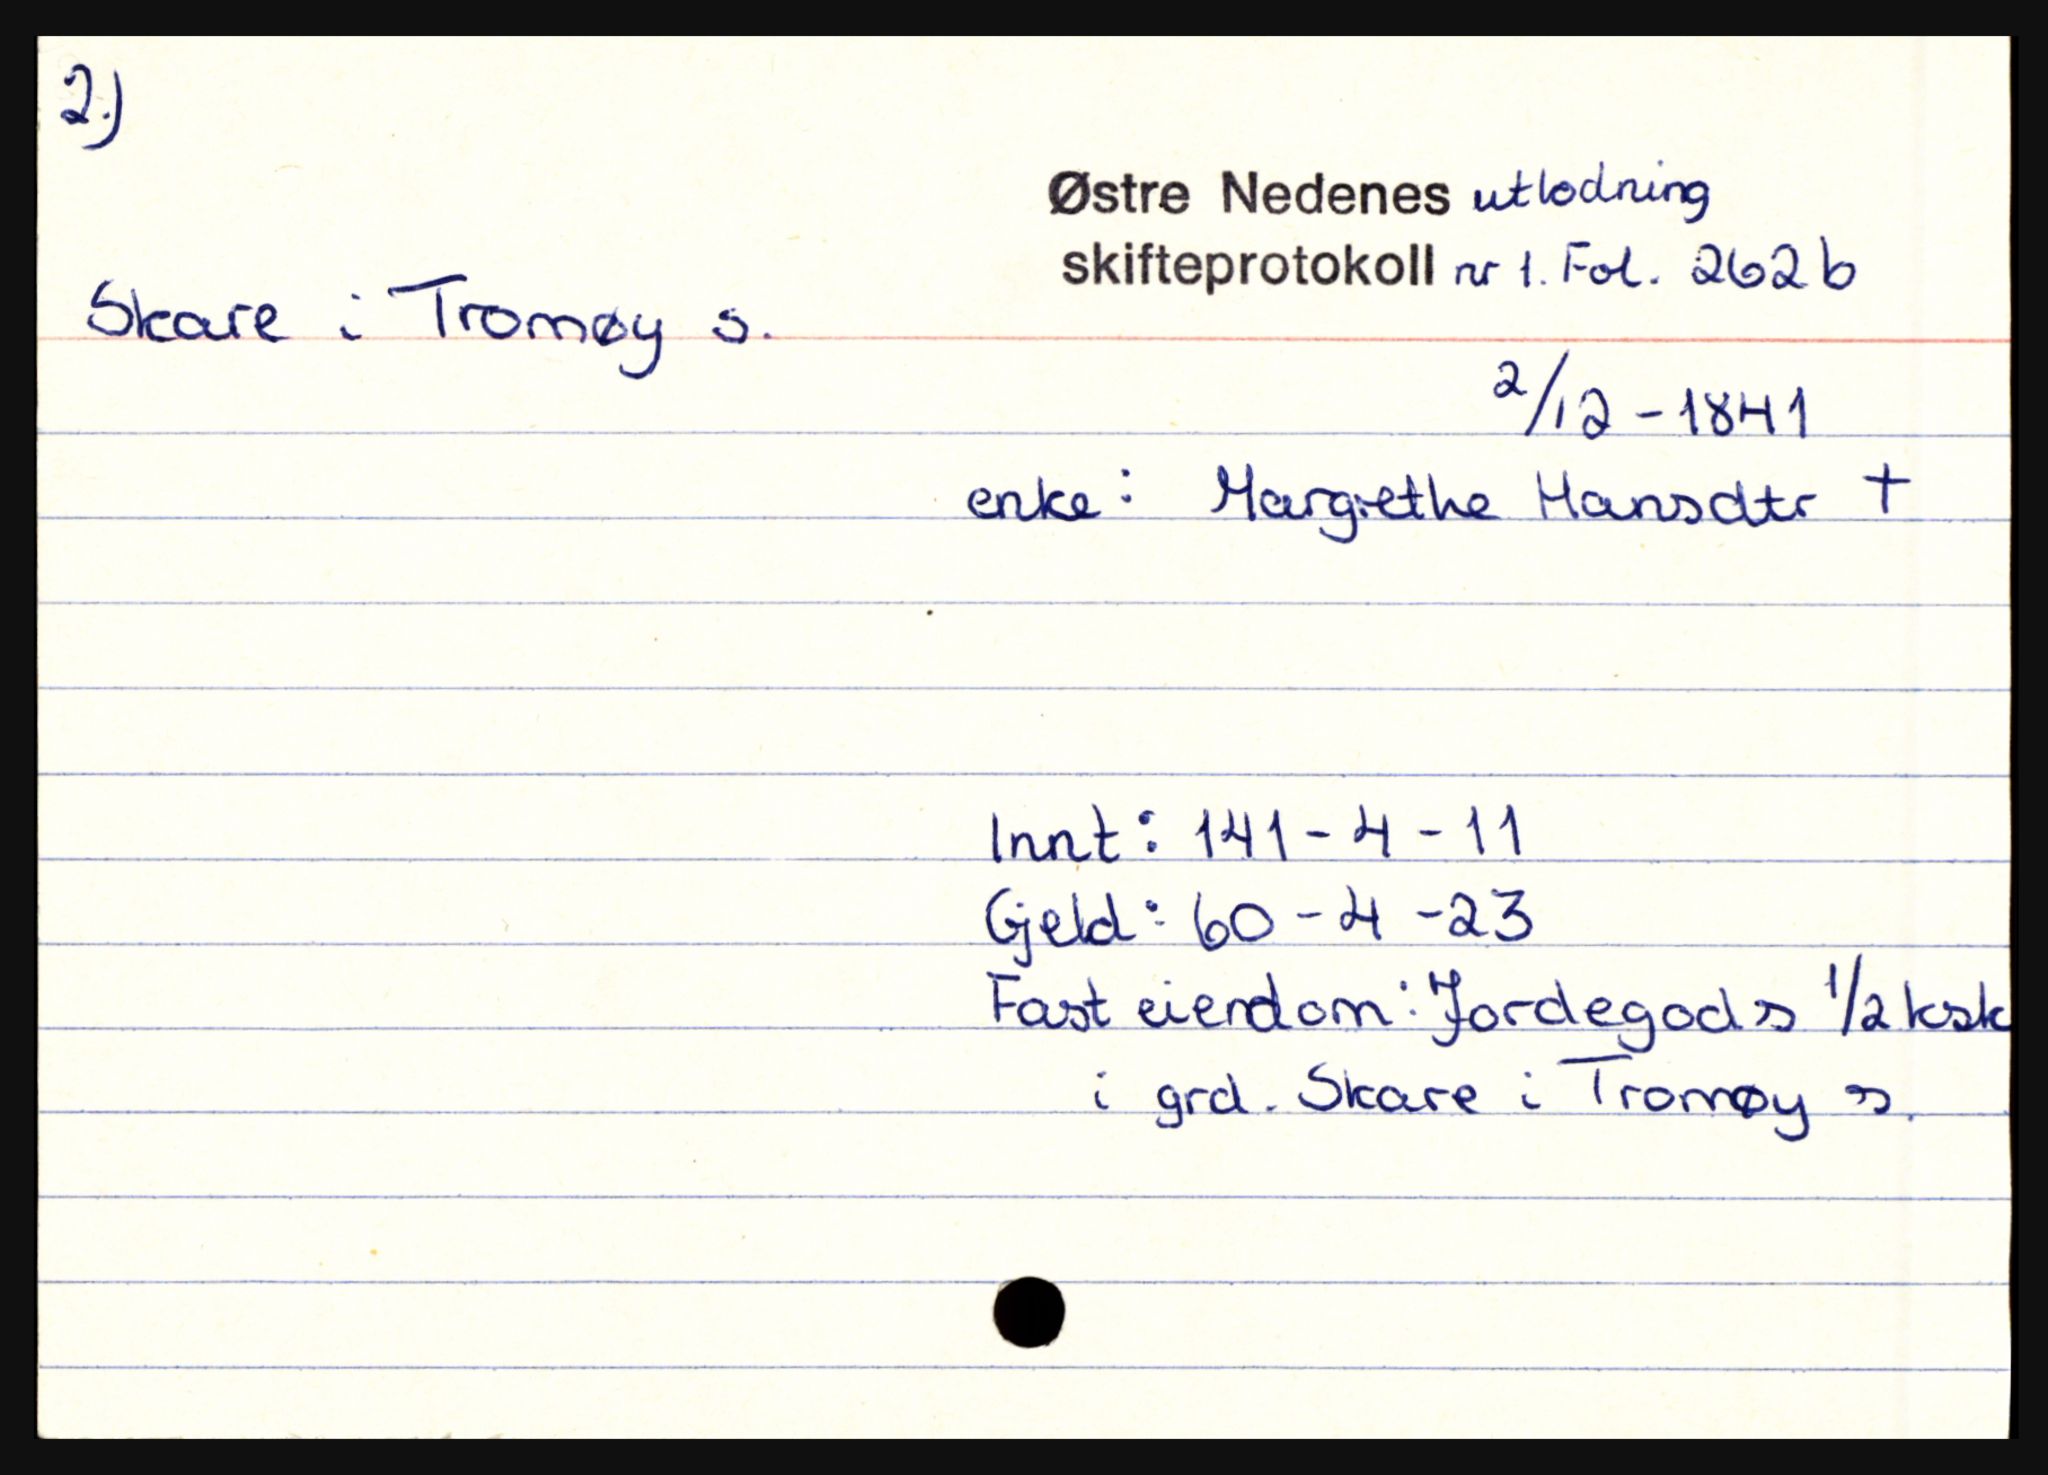 2.)
Østre Nedenes utlodning
skifteprotokoll nr 1. Fol. 262 b
Skare i Tromøy s.
2/12 - 1841
enke: Margrethe Hansdtr †
Innt: 141 - 4 - 11
Gjeld: 60 - 4 - 23
Fast eiendom: Jordegods 1/2 ksk
i grd. Skare i Tromøy s.